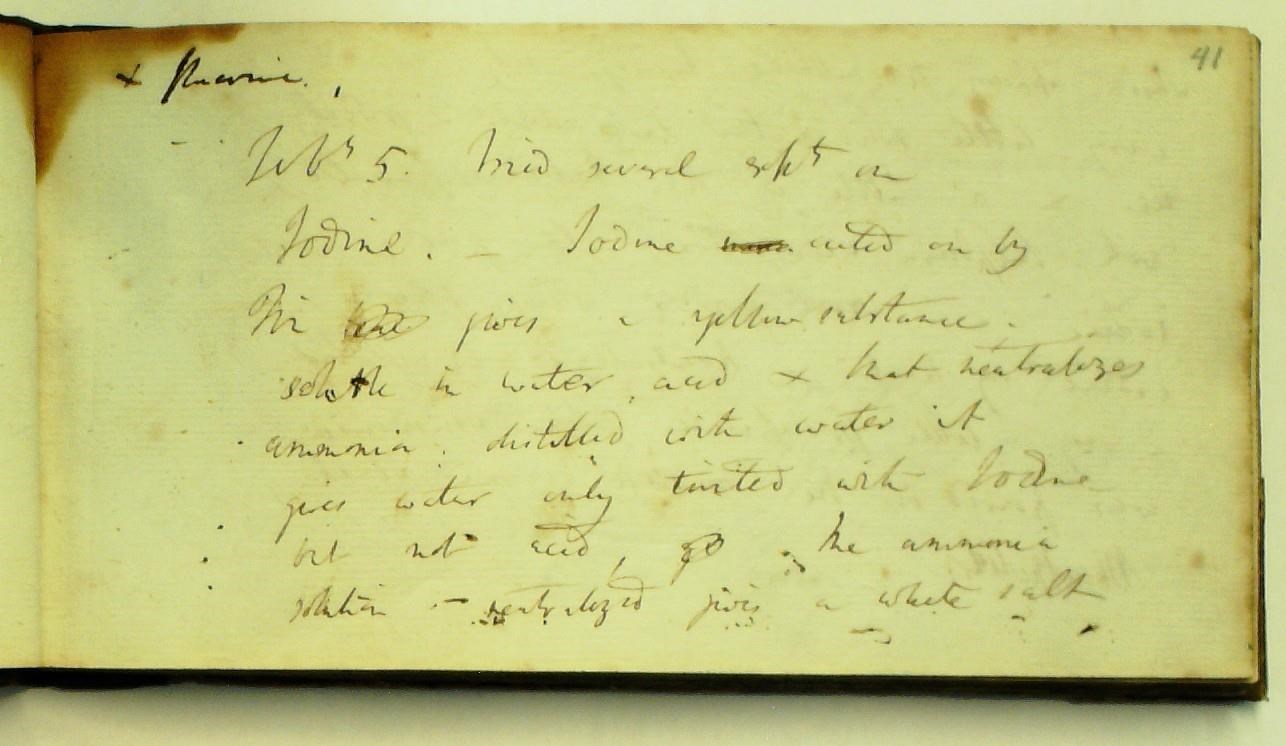 41
+ fluorine.,
Feby 5. Tried several expts on
Iodine. – Iodine acted on by
Tin gives a yellow substance.
soluble in water, acid + that neutralizes
ammonia. distilled with water it
gives water only tinted with Iodine
but not acid, the ammonia
solution – neutralized gives a white salt